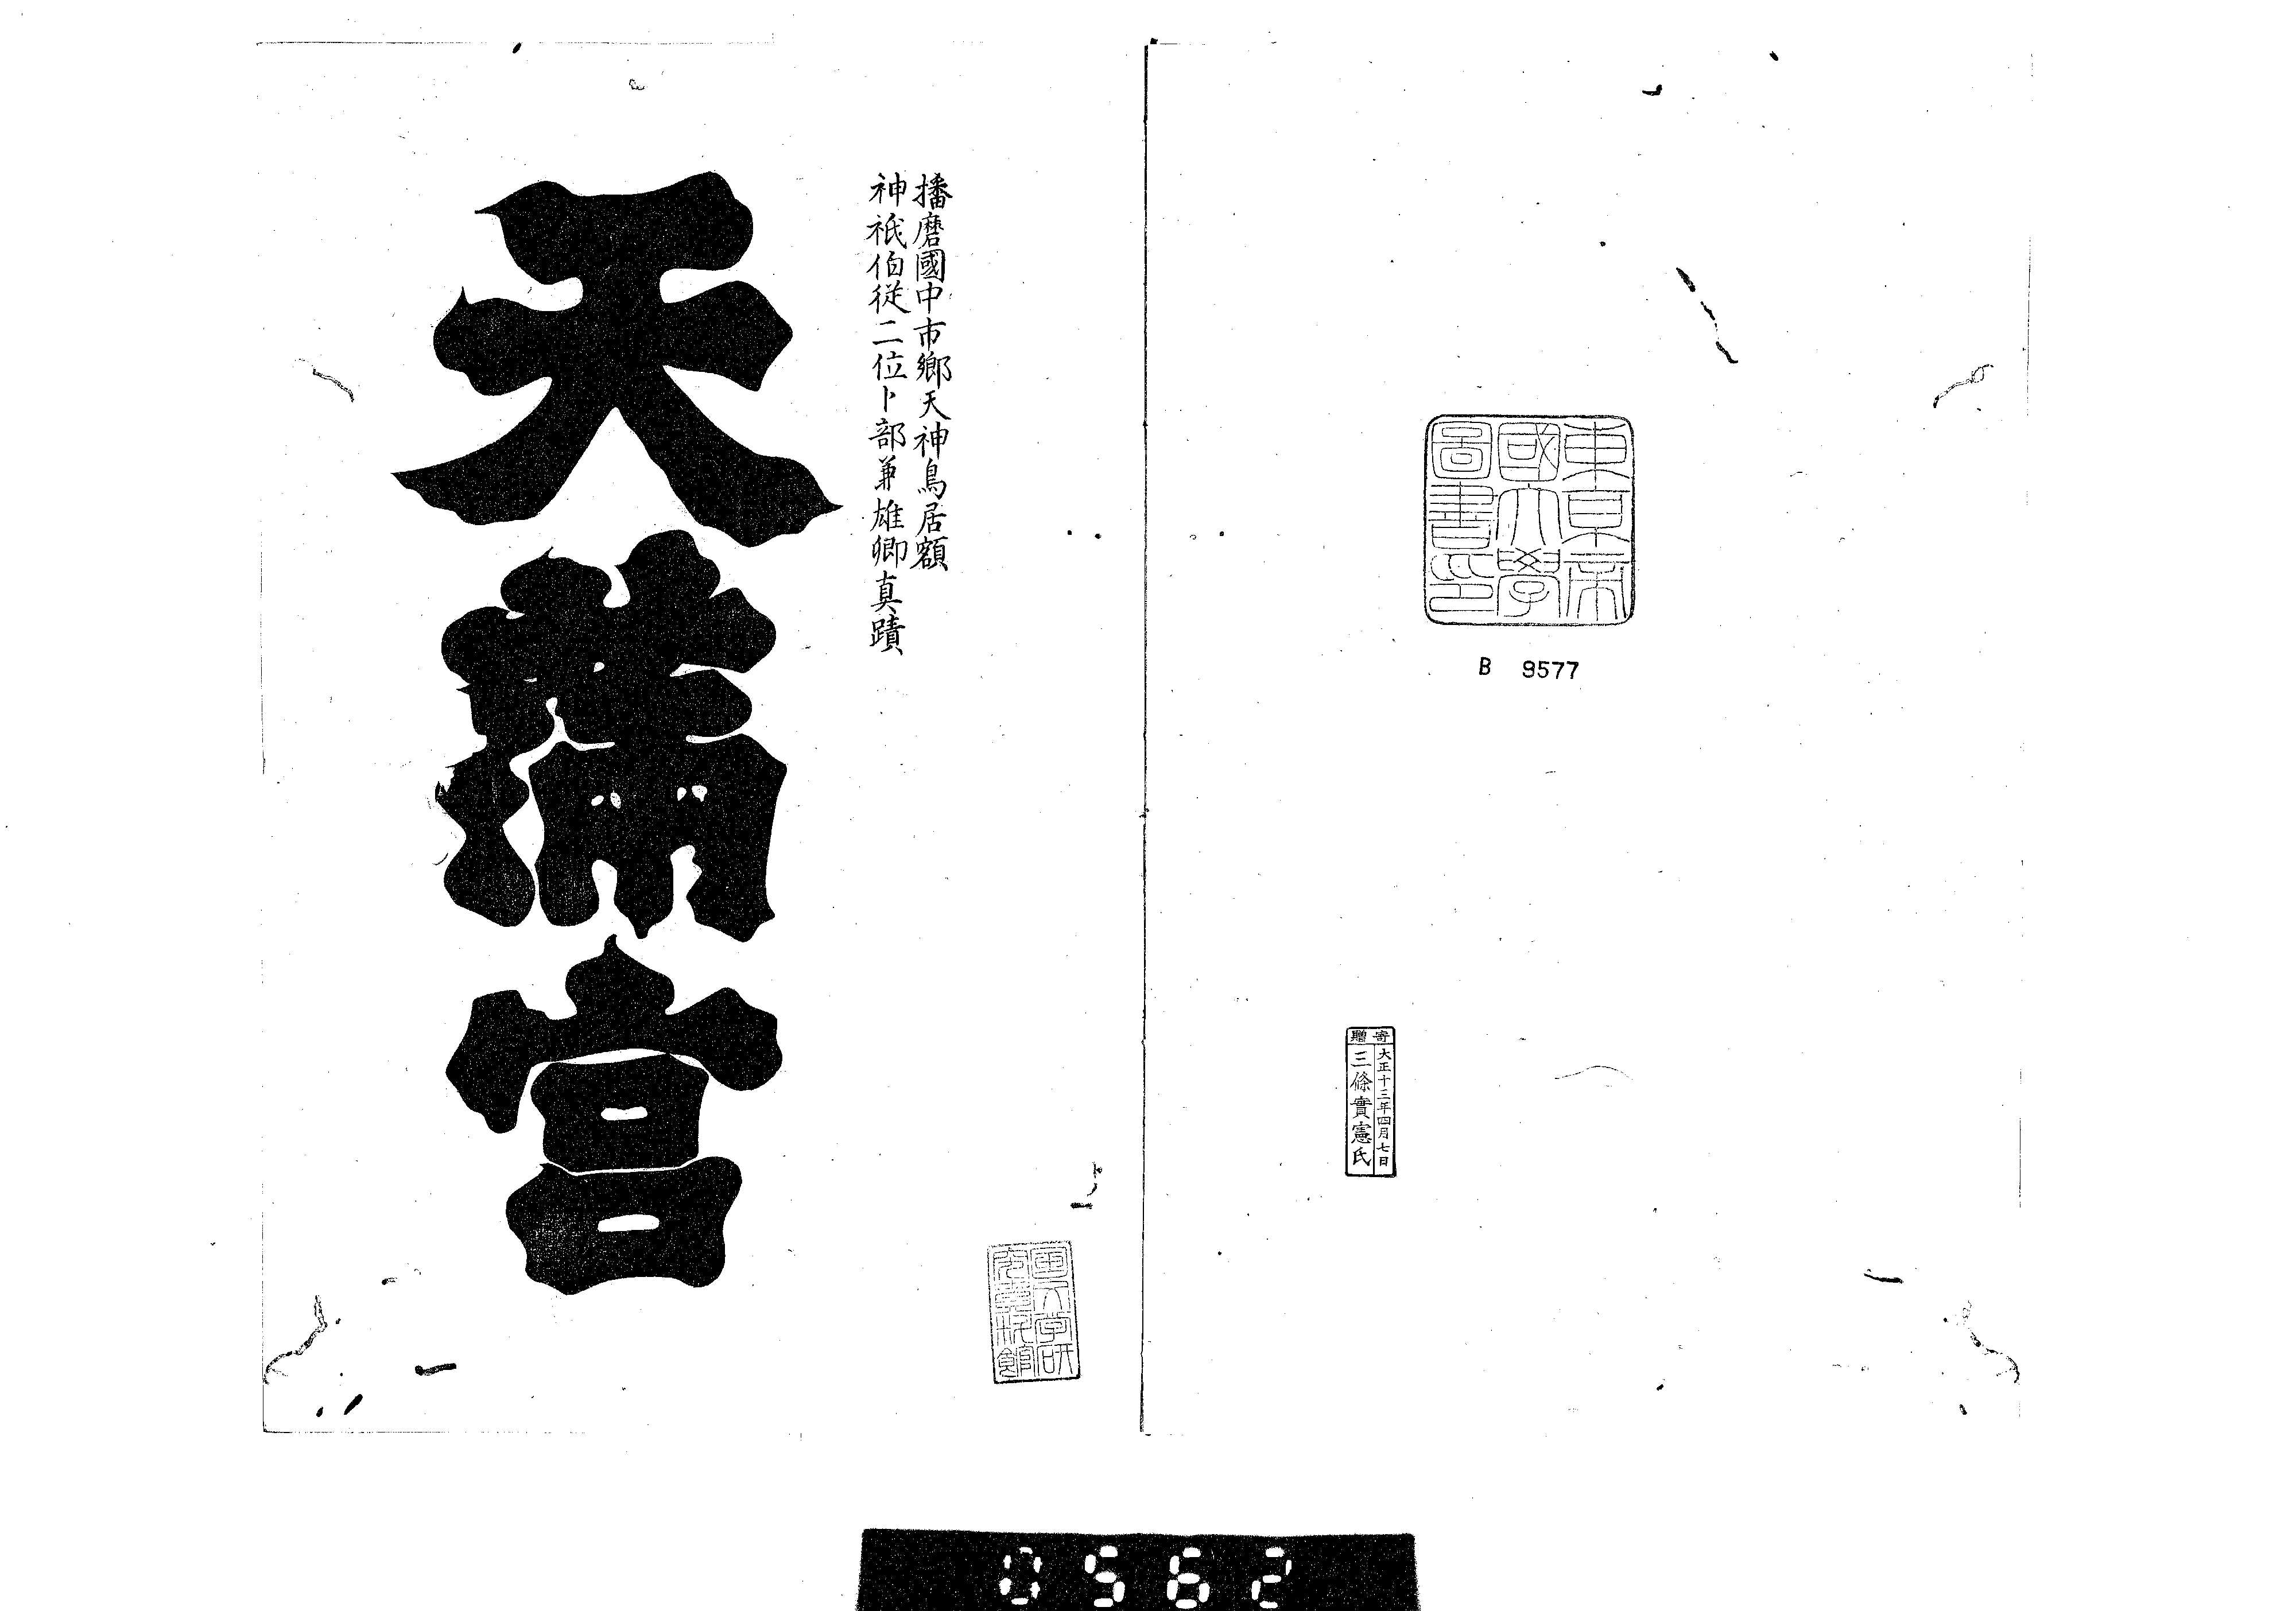 東京帝
國大學
圖書印
B 9577
寄贈
大正十三年四月七日
三條實憲氏
播磨國中市鄉天神鳥居額
神祇伯従二位卜部兼雄卿真蹟
天滿宮
0562